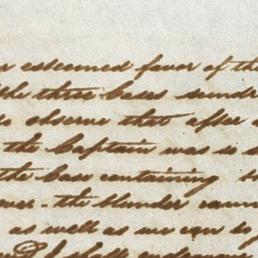 esteemed favor of the
the three boxes sundr
observe that after
the Captain was so
the box containing
the blunder cann
as well as we can to
I shall endeavor